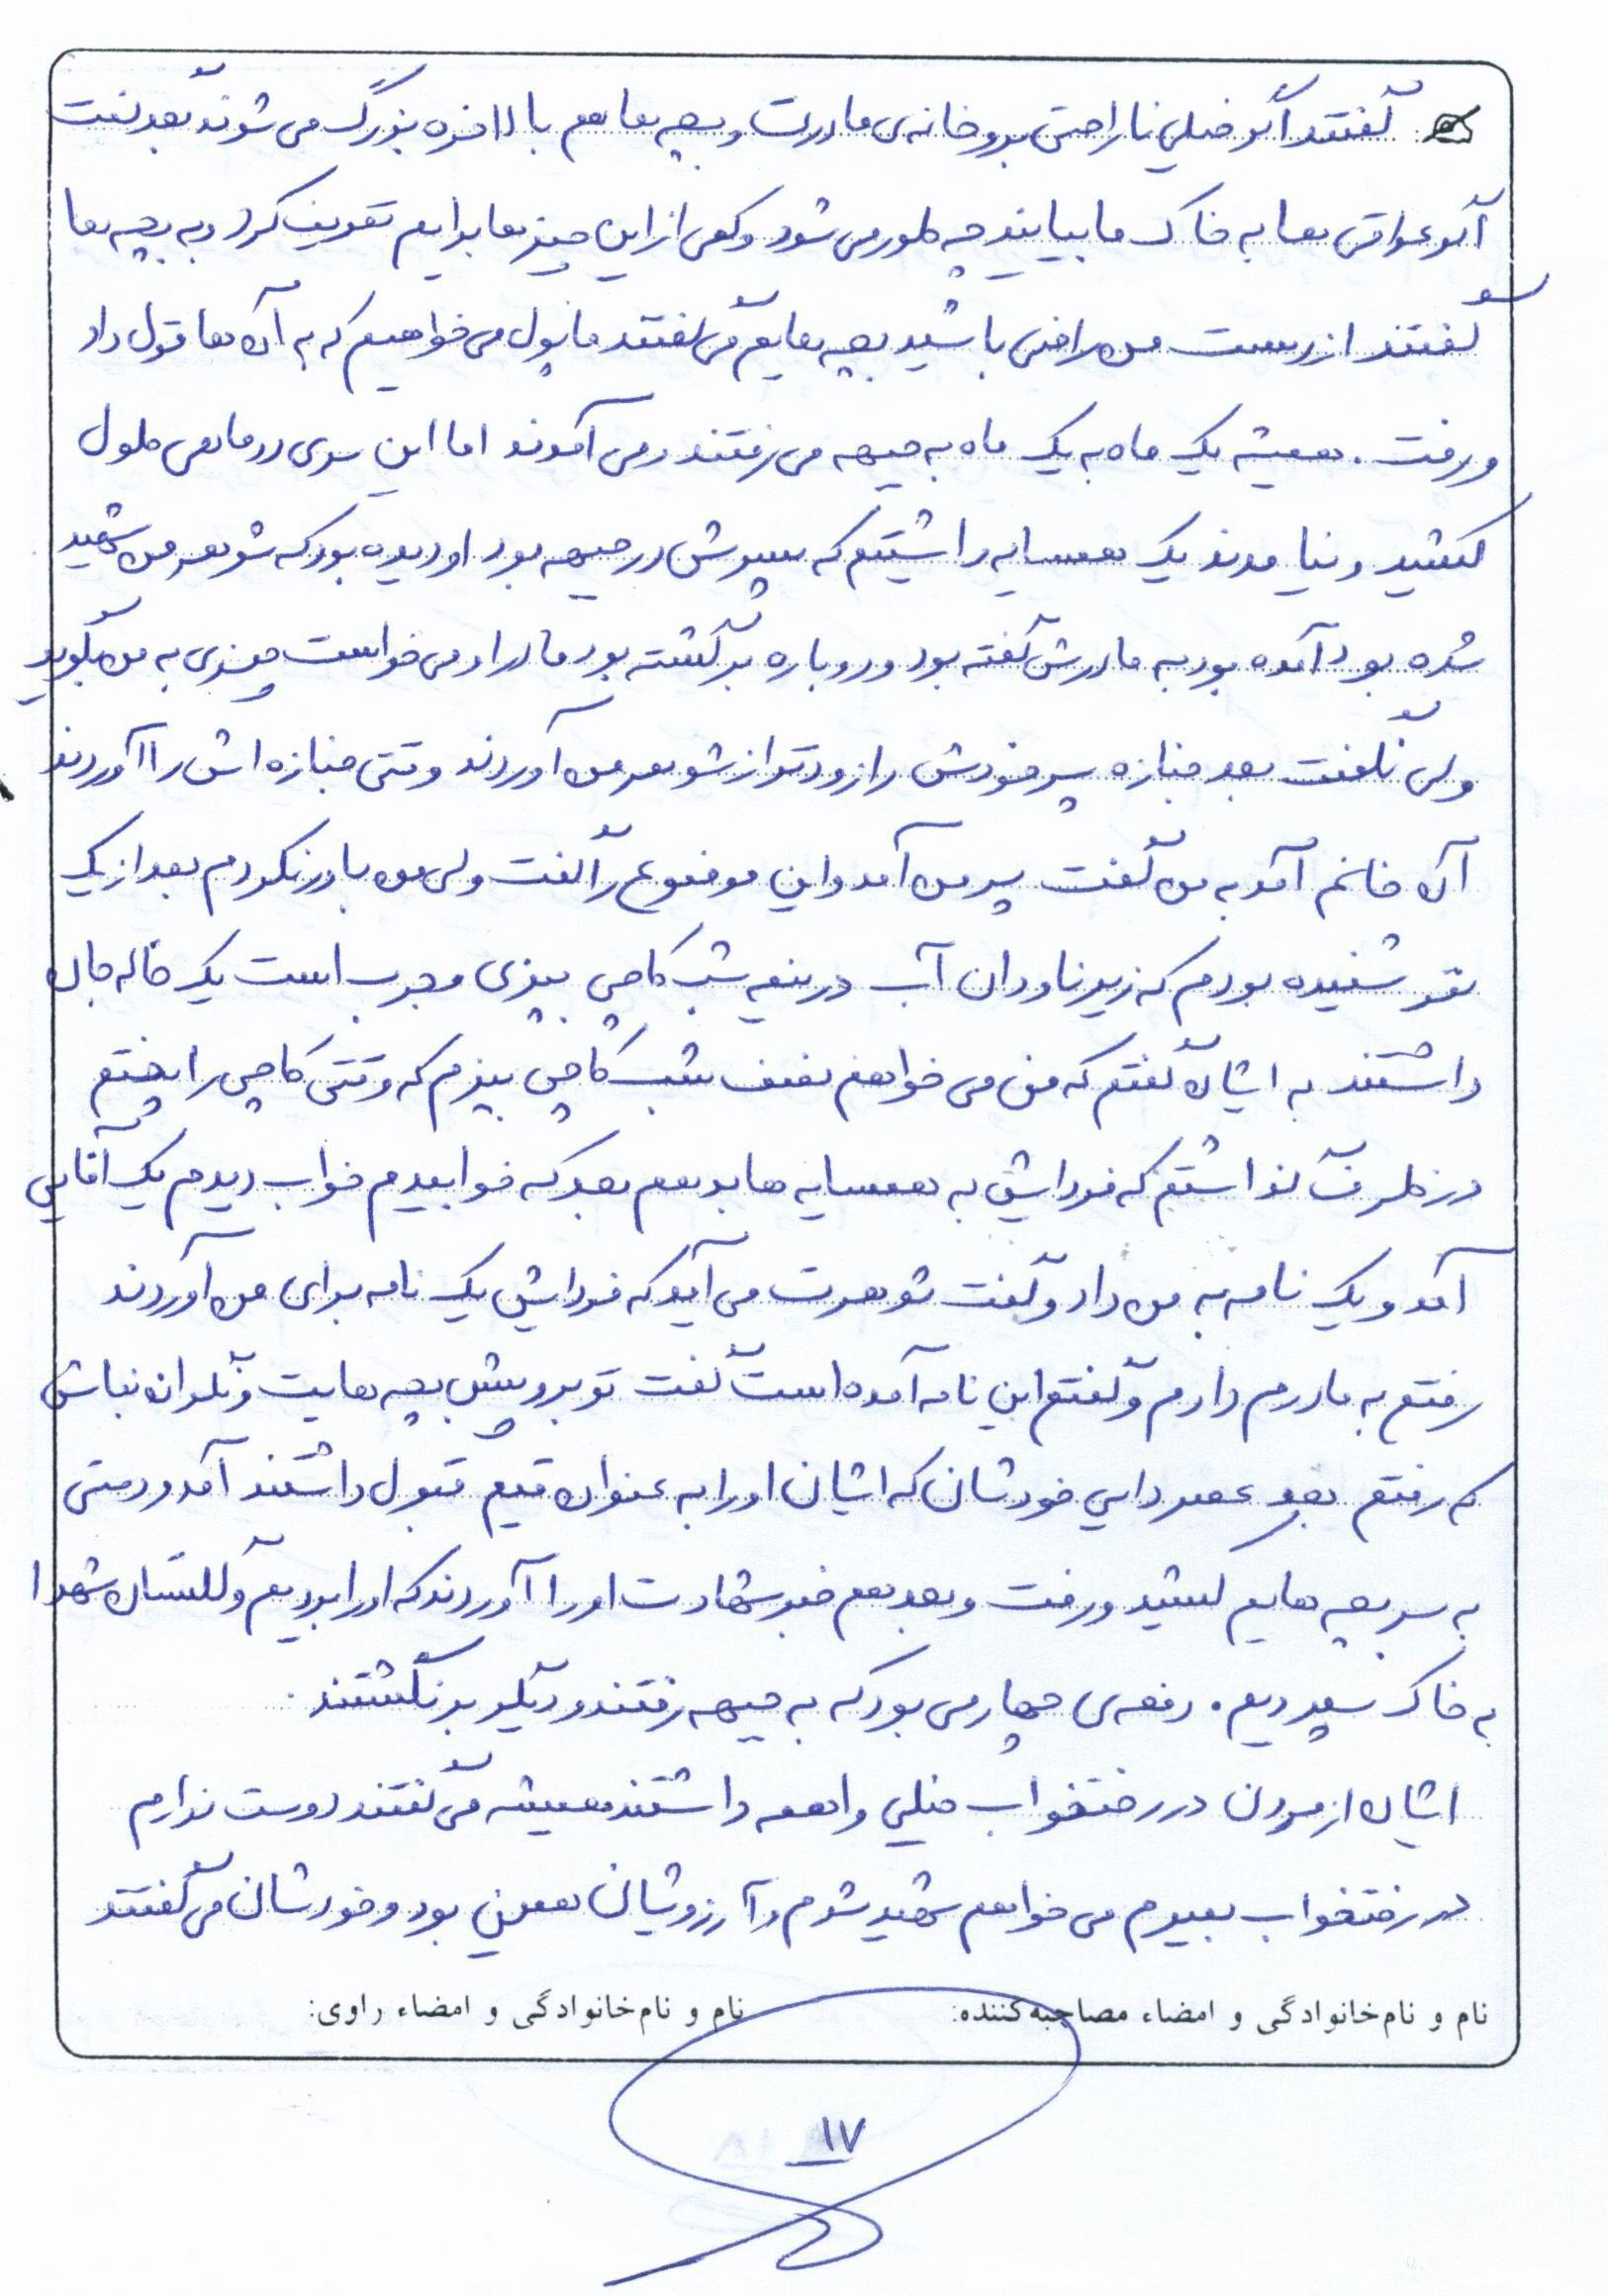 گفتند اگر خیلی ناراحتی برو خانه‌ی مادرت و بچه ها هم بالاخره بزرگ می شوند بعد گفت
اگر عراقی ها به خاک ما بیایند چه طور می شود و کمی از این چیزها برایم تعریف کرد و به بچه ها
گفتند از دست من راضی باشید بچه هایم می گفتند ما پول می خواهیم که به آن ها قول داد
و رفت. همیشه یک ماه به یک ماه به جبهه می رفتند و می آمدند اما این سری دو ماهی طول
کشید و نیامدند یک همسایه داشتیم که پسرش در جبهه بود او دیده بود که شوهر من شهید
شده بود آمده بود به مادرش گفته بود و دوباره برگشته بود مادر او می خواست چیزی به من بگوید
ولی نگفت بعد جنازه پسر خودش را زودتر از شوهر من آوردند وقتی جنازه اش را آوردند
آن خانم آمد به من گفت پسر من آمد و این موضوع را گفت ولی من باور نکردم بعد از یک
نفر شنیده بودم که زیر ناودان آب در نیمه شب کاچی بپزی مجرب است یک خاله جان
داشتند به ایشان گفتم که من می خواهم نصف شب کاچی بپزم که وقتی کاچی را پختم
در ظرف گذاشتم که فردایش به همسایه ها بدهم بعد که خوابیدم خواب دیدم یک آقایی
آمد و یک نامه به من داد و گفت شوهرت می آید که فردایش یک نامه برای من آوردند
رفتم به مادرم دادم و گفتم این نامه آمده است گفت تو برو پیش بچه هایت و نگران نباش
که رفتم بعد عصر دایی خودشان که ایشان او را به عنوان قیم قبول داشتند آمد و دستی
به سر بچه هایم کشید و رفت و بعد هم خبر شهادت او را آوردند که او را بردیم و گلستان شهدا
به خاک سپردیم. دفعه‌ی چهارمی بود که به جبهه رفتند و دیگر برنگشتند.
ایشان از مردن در رختخواب خیلی واهمه داشتند همیشه می گفتند دوست ندارم
در رختخواب بمیرم می خواهم شهید شوم و آرزویشان همین بود و خودشان می گفتند
نام و نام‌خانوادگی و امضاء مصاحبه‌کننده: نام و نام‌خانوادگی و امضاء راوی:
۱۷